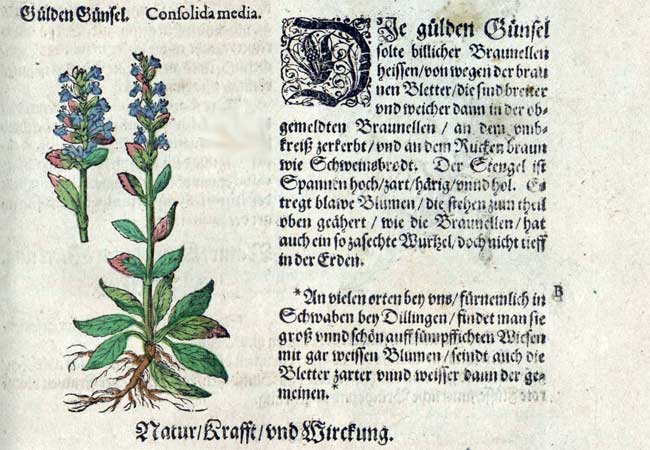 Gülden Günsel. Consolida media.
DJe gülden Günsel
solte billicher Braunellen
heissen/von wegen der brau
nen Bletter/die sind breiter
vnd weicher dann in der ob-
gemeldten Braunellen / an dem vmb-
kreiß zerkerbt/vnd an dem Rucken braun
wie Schweinsbrodt. Der Stengel ist
Spannen hoch/zart/härig/vnnd hol. Es
tregt blawe Blumen / die stehen zum theil
oben geähert / wie die Braunellen/hat
auch ein so zasechte Wurtzel/doch nicht tieff
in der Erden.
*An vielen orten bey vns/fürnemlich in
Schwaben bey Dillingen/findet man sie
groß vnnd schön auff sümpffichten Wiesen
mit gar weissen Blumen/seindt auch die
Bletter zarter vnnd weisser dann der ge-
meinen.*
B
Natur/Krafft/vnd Wirckung.